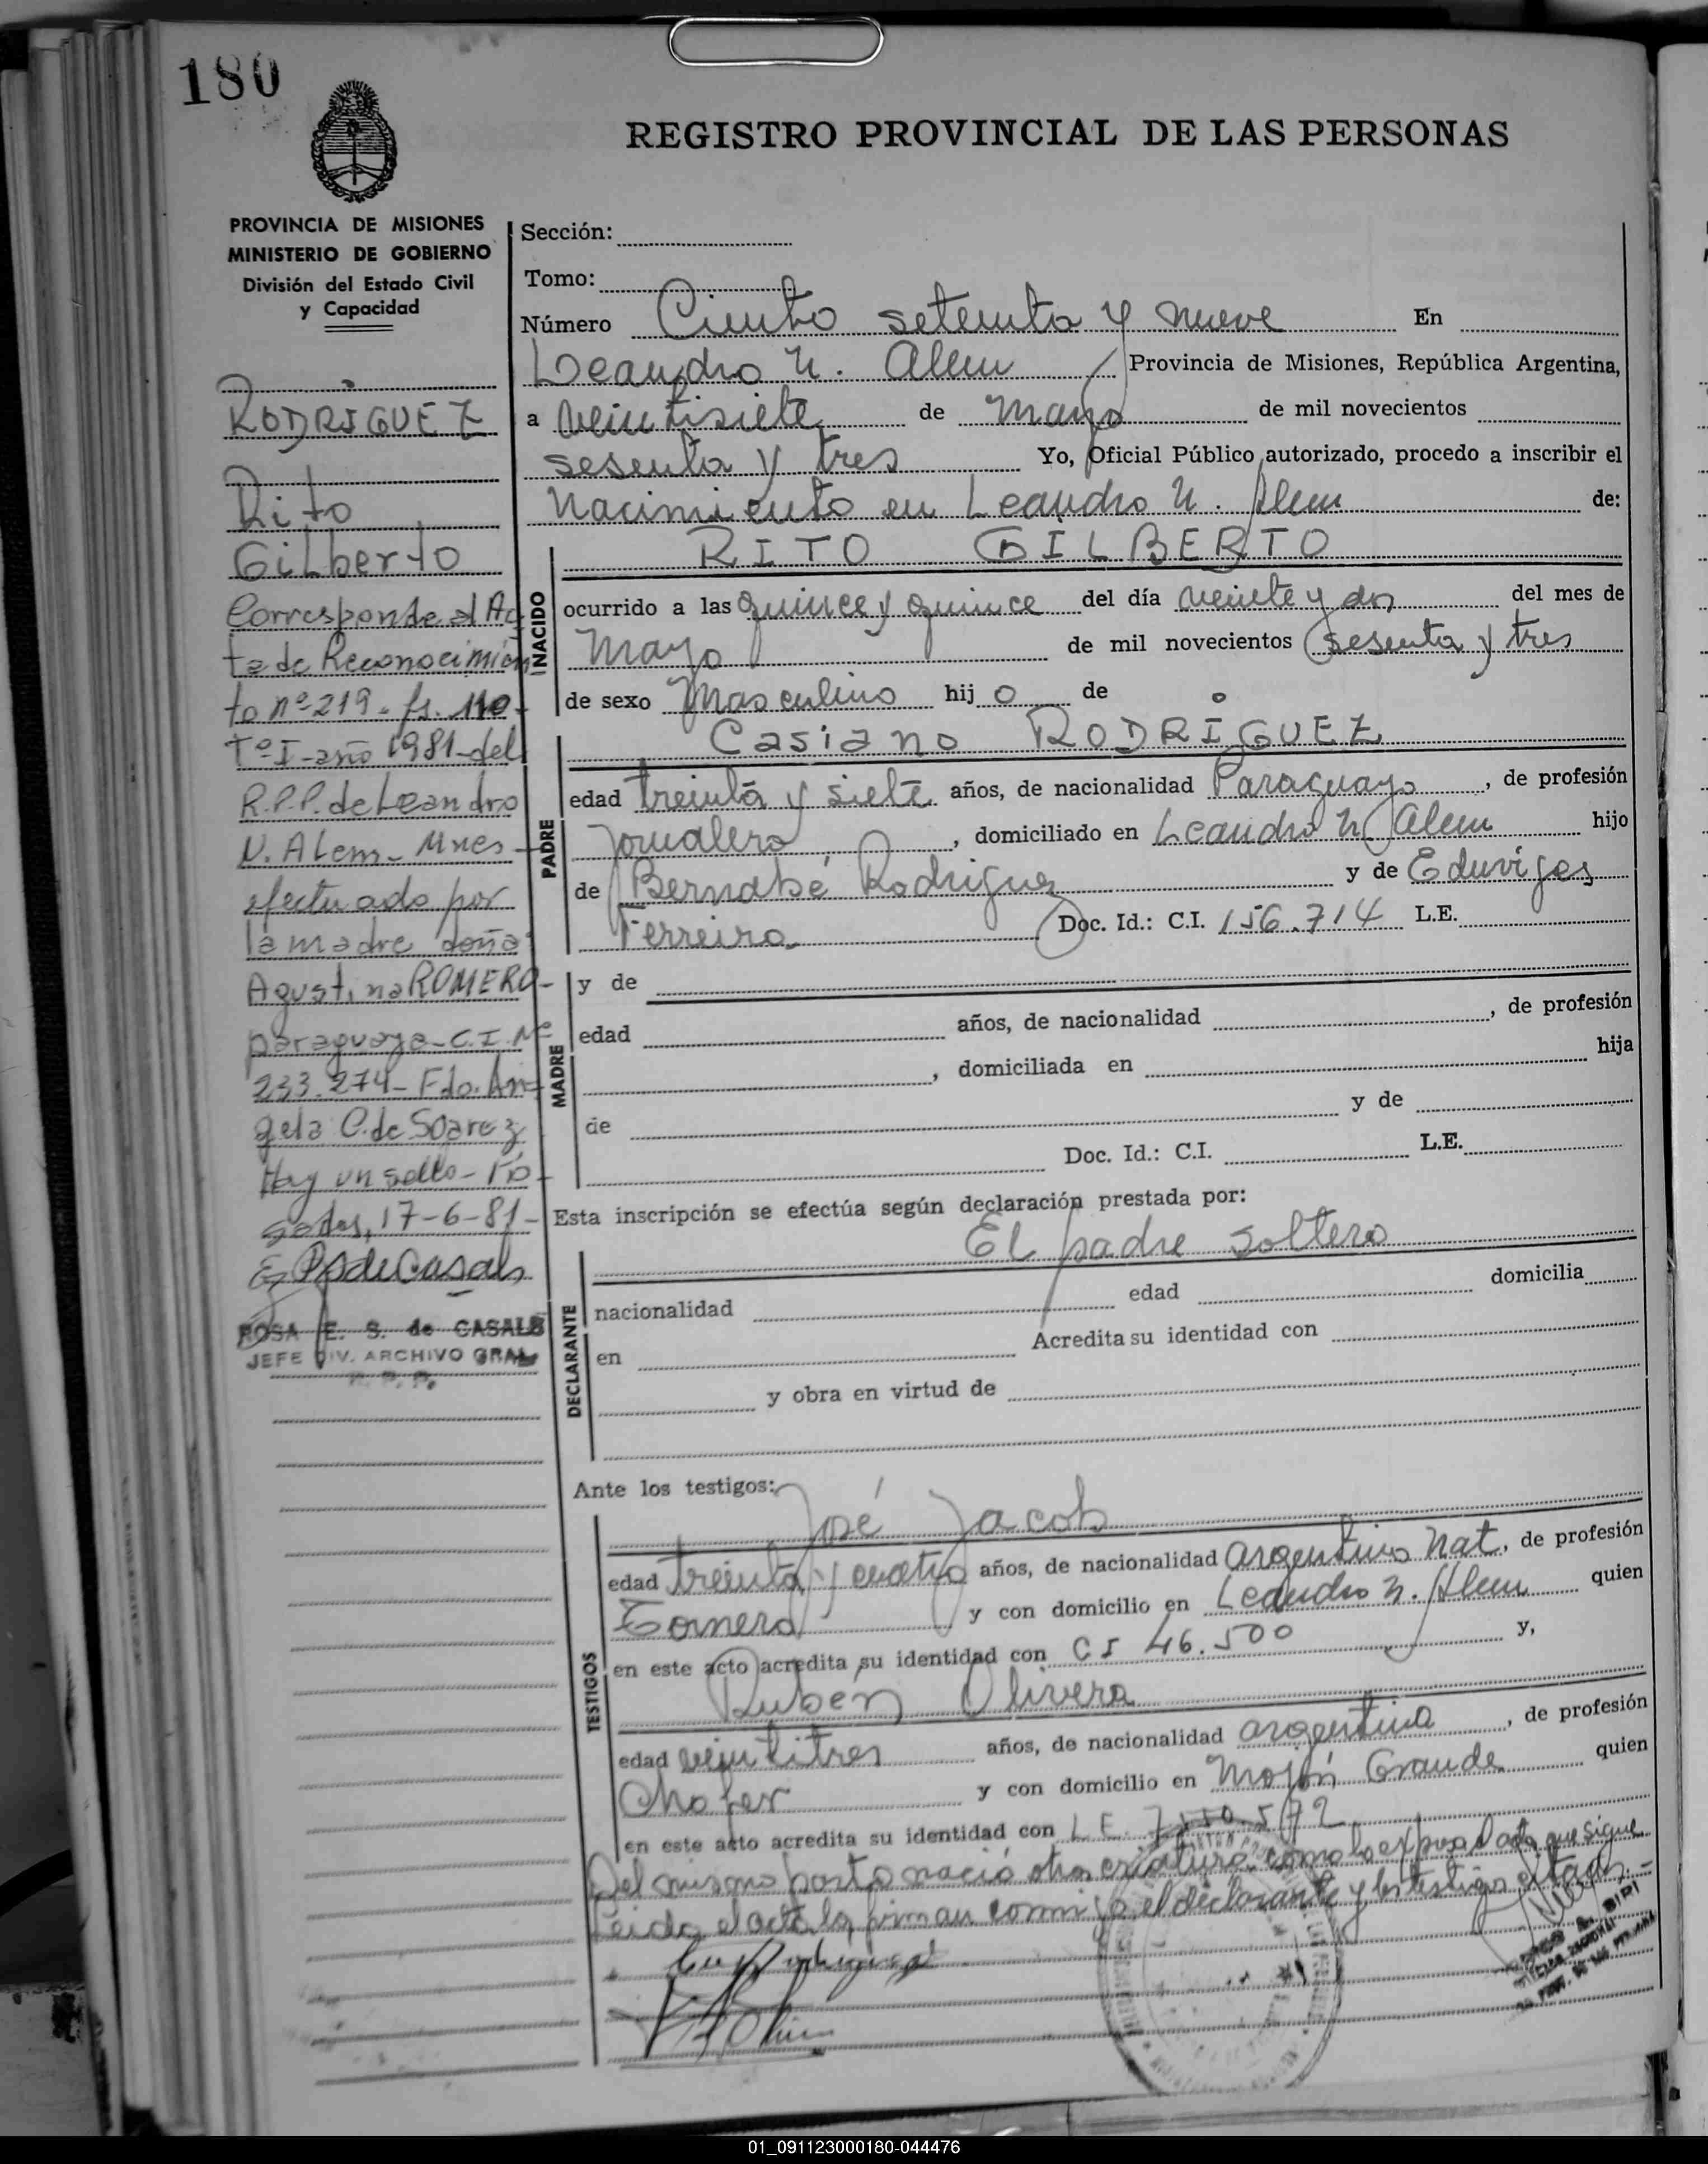 180
REGISTRO PROVINCIAL DE LAS PERSONAS
PROVINCIA DE MISIONES
MINISTERIO DE GOBIERNO
División del Estado Civil
y Capacidad
RODRÍGUEZ
Rito
Gilberto
Corresponde al Ac
ta de Reconocimien
to nº 219 - fs. 110 -
Tº I - año 1981 - del
R.P.P. de Leandro
N. Alem - Mnes -
efectuado por
la madre doña
Agustina ROMERO -
paraguaya - C.I. Nº
233.274 - Fdo. An=
gela C. de Soarez
Hay un sello - Po
sadas, 17-6-81 -
ROSA E. S. de CASALS
JEFE DIV. ARCHIVO GRAL
R. P. P.
Sección:
Tomo:
Número Ciento setenta y nueve En
Leandro N. Alem Provincia de Misiones, República Argentina,
a veintisiete de mayo de mil novecientos
sesenta y tres Yo, Oficial Público autorizado, procedo a inscribir el
nacimiento en Leandro N. Alem de:
RITO GILBERTO
NACIDO
ocurrido a las quince y quince del día veinte y dos del mes de
Mayo de mil novecientos sesenta y tres
de sexo Masculino hijo de
Casiano RODRÍGUEZ
PADRE
edad treinta y siete años, de nacionalidad Paraguayo, de profesión
Jornalero, domiciliado en Leandro N. Alem hijo
de Bernabé Rodriguez y de Eduviges
Ferreira Doc. Id.: C.I. 156.714 L.E.
MADRE
y de
edad años, de nacionalidad , de profesión
, domiciliada en hija
de y de
Doc. Id.: C.I. L.E.
Esta inscripción se efectúa según declaración prestada por:
El padre soltero
DECLARANTE
nacionalidad edad domicilia
en Acredita su identidad con
y obra en virtud de
Ante los testigos:
José Jacob
TESTIGOS
edad treinta y cuatro años, de nacionalidad argentino Nat, de profesión
Tornero y con domicilio en Leandro N. Alem quien
en este acto acredita su identidad con CI 46.500 y,
Rubén Olivera
edad veintitres años, de nacionalidad argentina, de profesión
Chofer y con domicilio en Mojón Grande quien
en este acto acredita su identidad con L E.
Del mismo parto nació otra criatura como lo expresa el acta que sigue
Leida el acta la firman conmigo, el declarante y los testigos citados.-
01_091123000180-044476